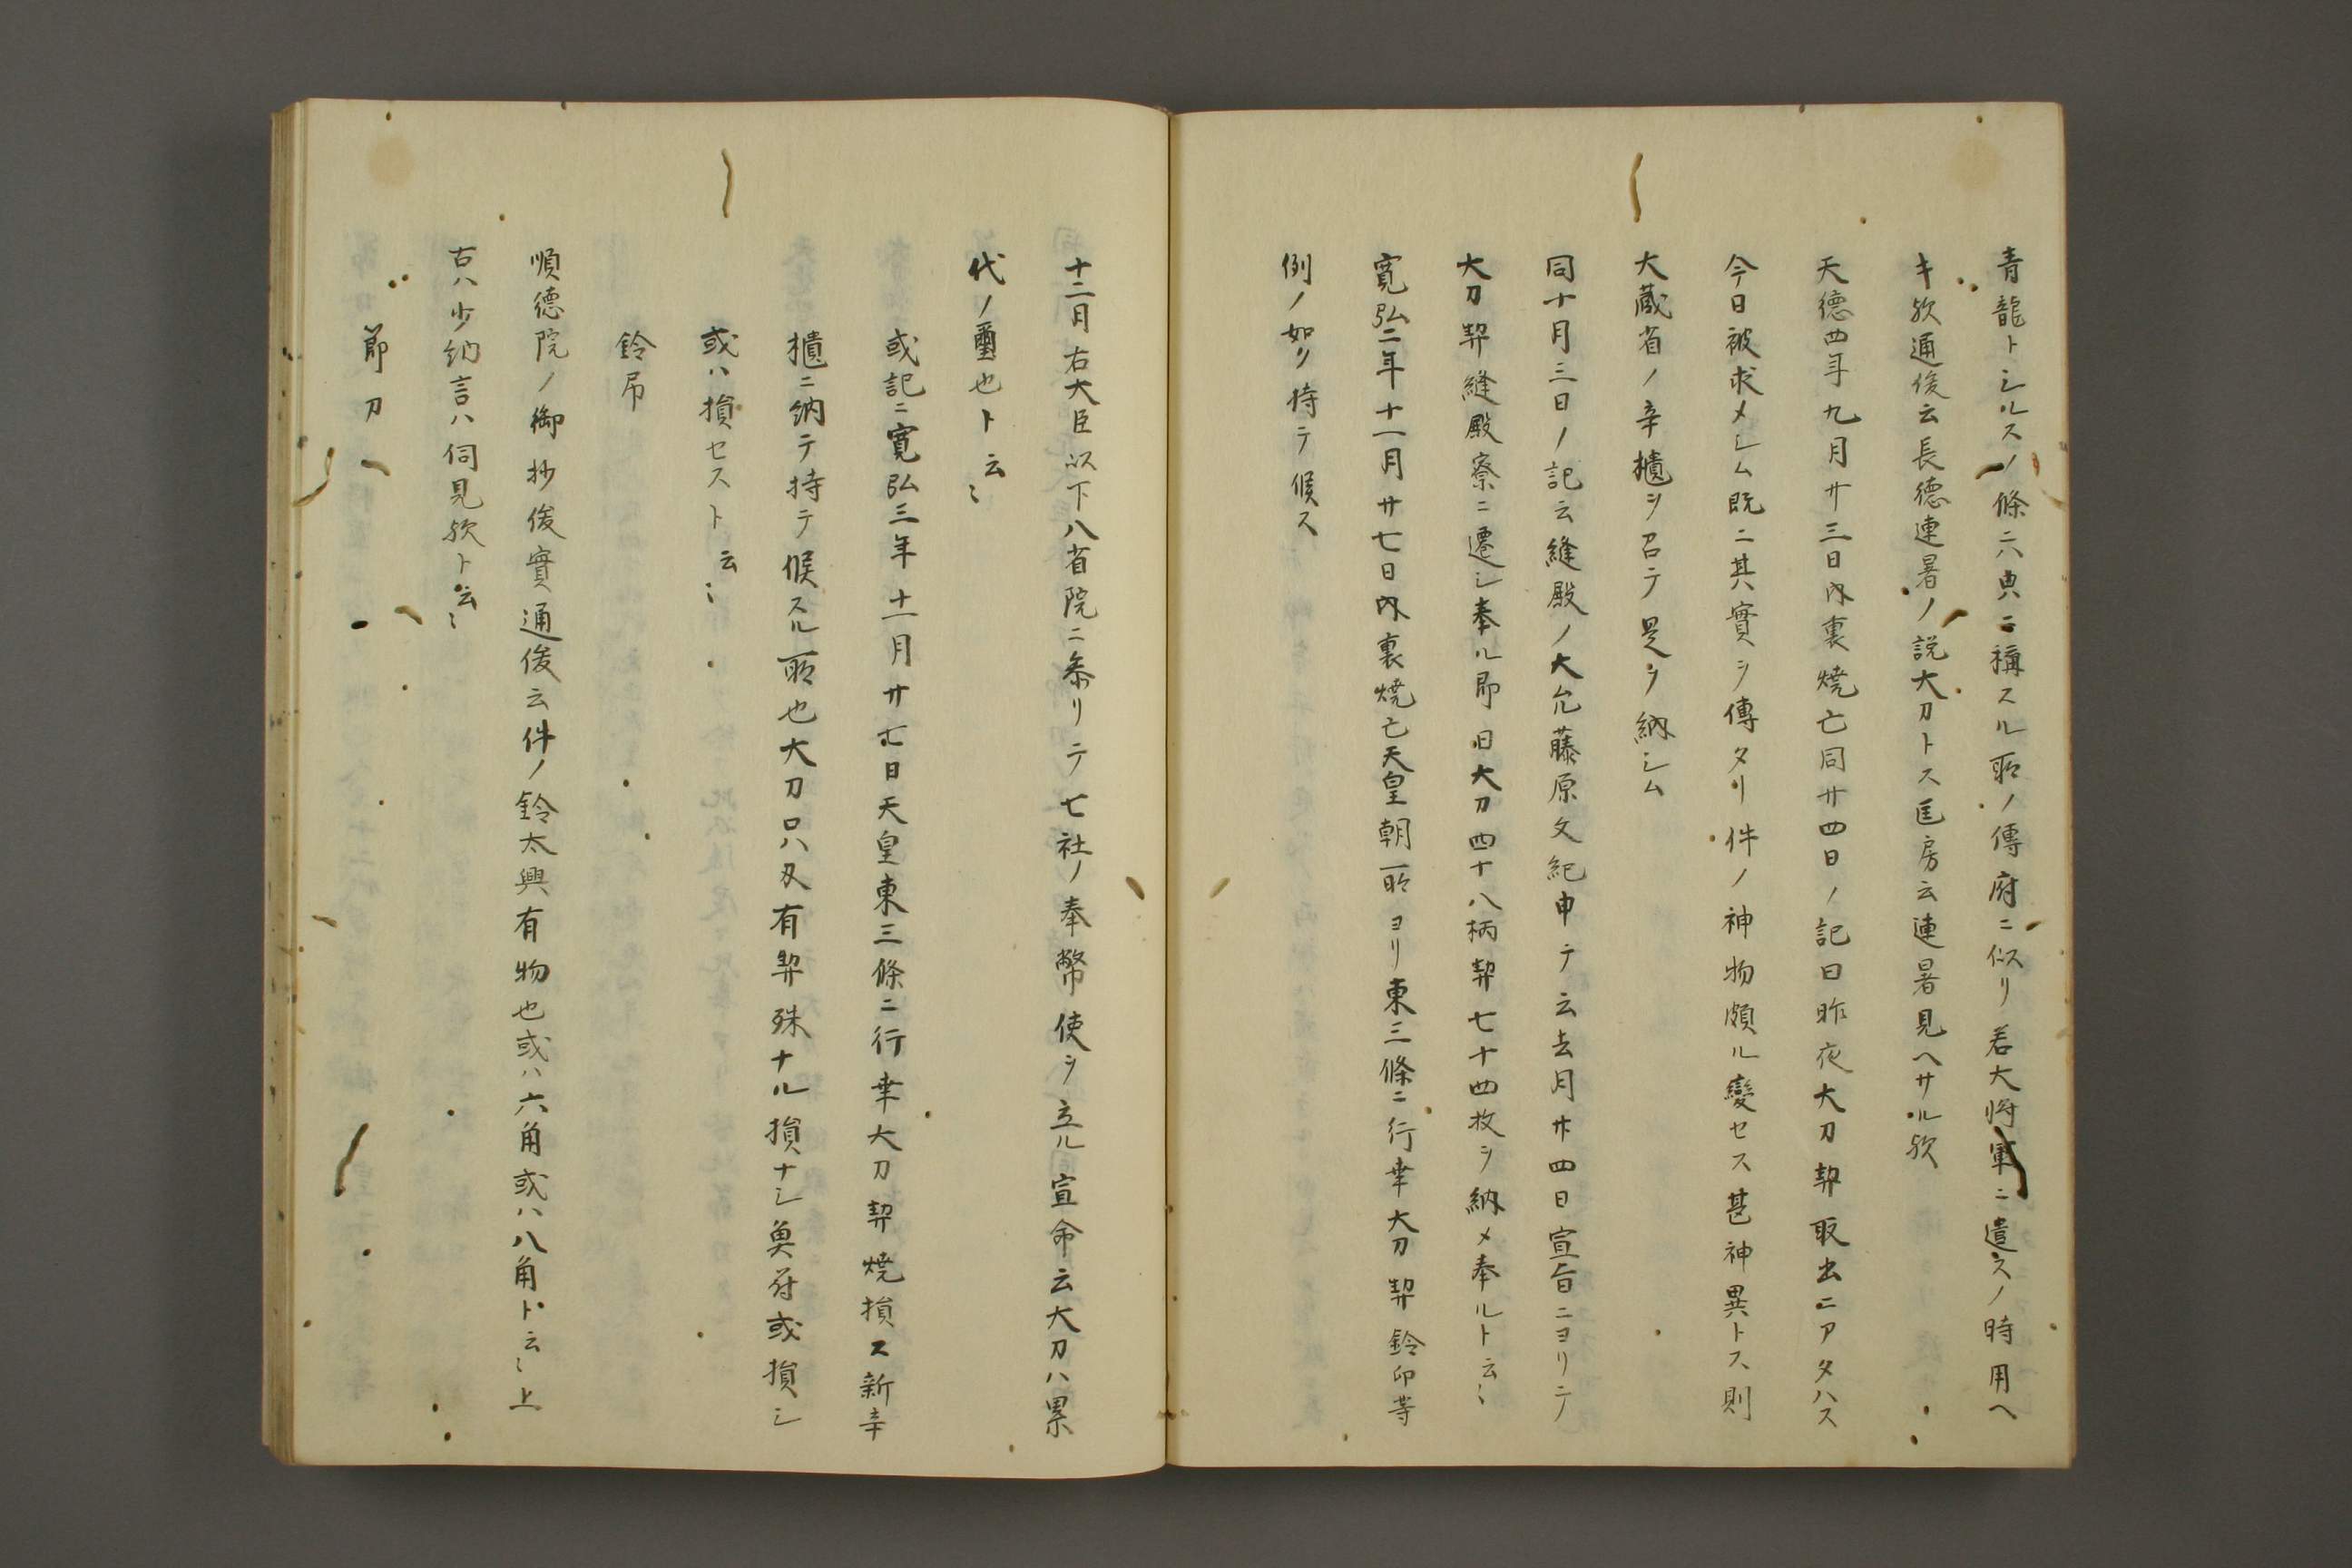 青龍トシルスノ條六典ニ稱スル所ノ傳府ニ似リ若大将軍ニ遣スノ時用ヘ
キ歟通俊云長徳連暑ノ説大刀トス匡房云連暑見ヘサル歟
天徳四年九月廿三日内裏焼亡同廿四日ノ記曰昨夜大刀契取出ニアタハス
今日被求メシム既ニ其實ヲ傳タリ件ノ神物頗ル變セス甚神異トス則
大蔵省ノ辛櫃ヲ召テ是ヲ納シム
同十月三日ノ記云縫殿ノ大允藤原文紀申テ云去月廿四日宣旨ニヨリテ
大刀契縫殿寮ニ遷シ奉ル即日大刀四十八柄契七十四枚ヲ納メ奉ルト云〻
寛弘二年十一月廿七日内裏焼亡天皇朝所ヨリ東三條ニ行幸大刀契鈴印等
例ノ如ク持テ候ス
十二月右大臣以下八省院ニ参リテ七社ノ奉幣使ヲ立ル宣命云大刀ハ累
代ノ璽也ト云〻
或記ニ寛弘三年十一月廿七日天皇東三條ニ行幸大刀契焼損ス新辛
櫃ニ納テ持テ候スル所也大刀口ハ刄有契殊ナル損ナシ魚符或損シ
或ハ損セスト云〻
鈴帋
順徳院ノ御抄俊實通俊云件ノ鈴太興有物也或ハ六角或ハ八角ト云〻上
古ハ少納言ハ伺見歟ト云〻
節刀